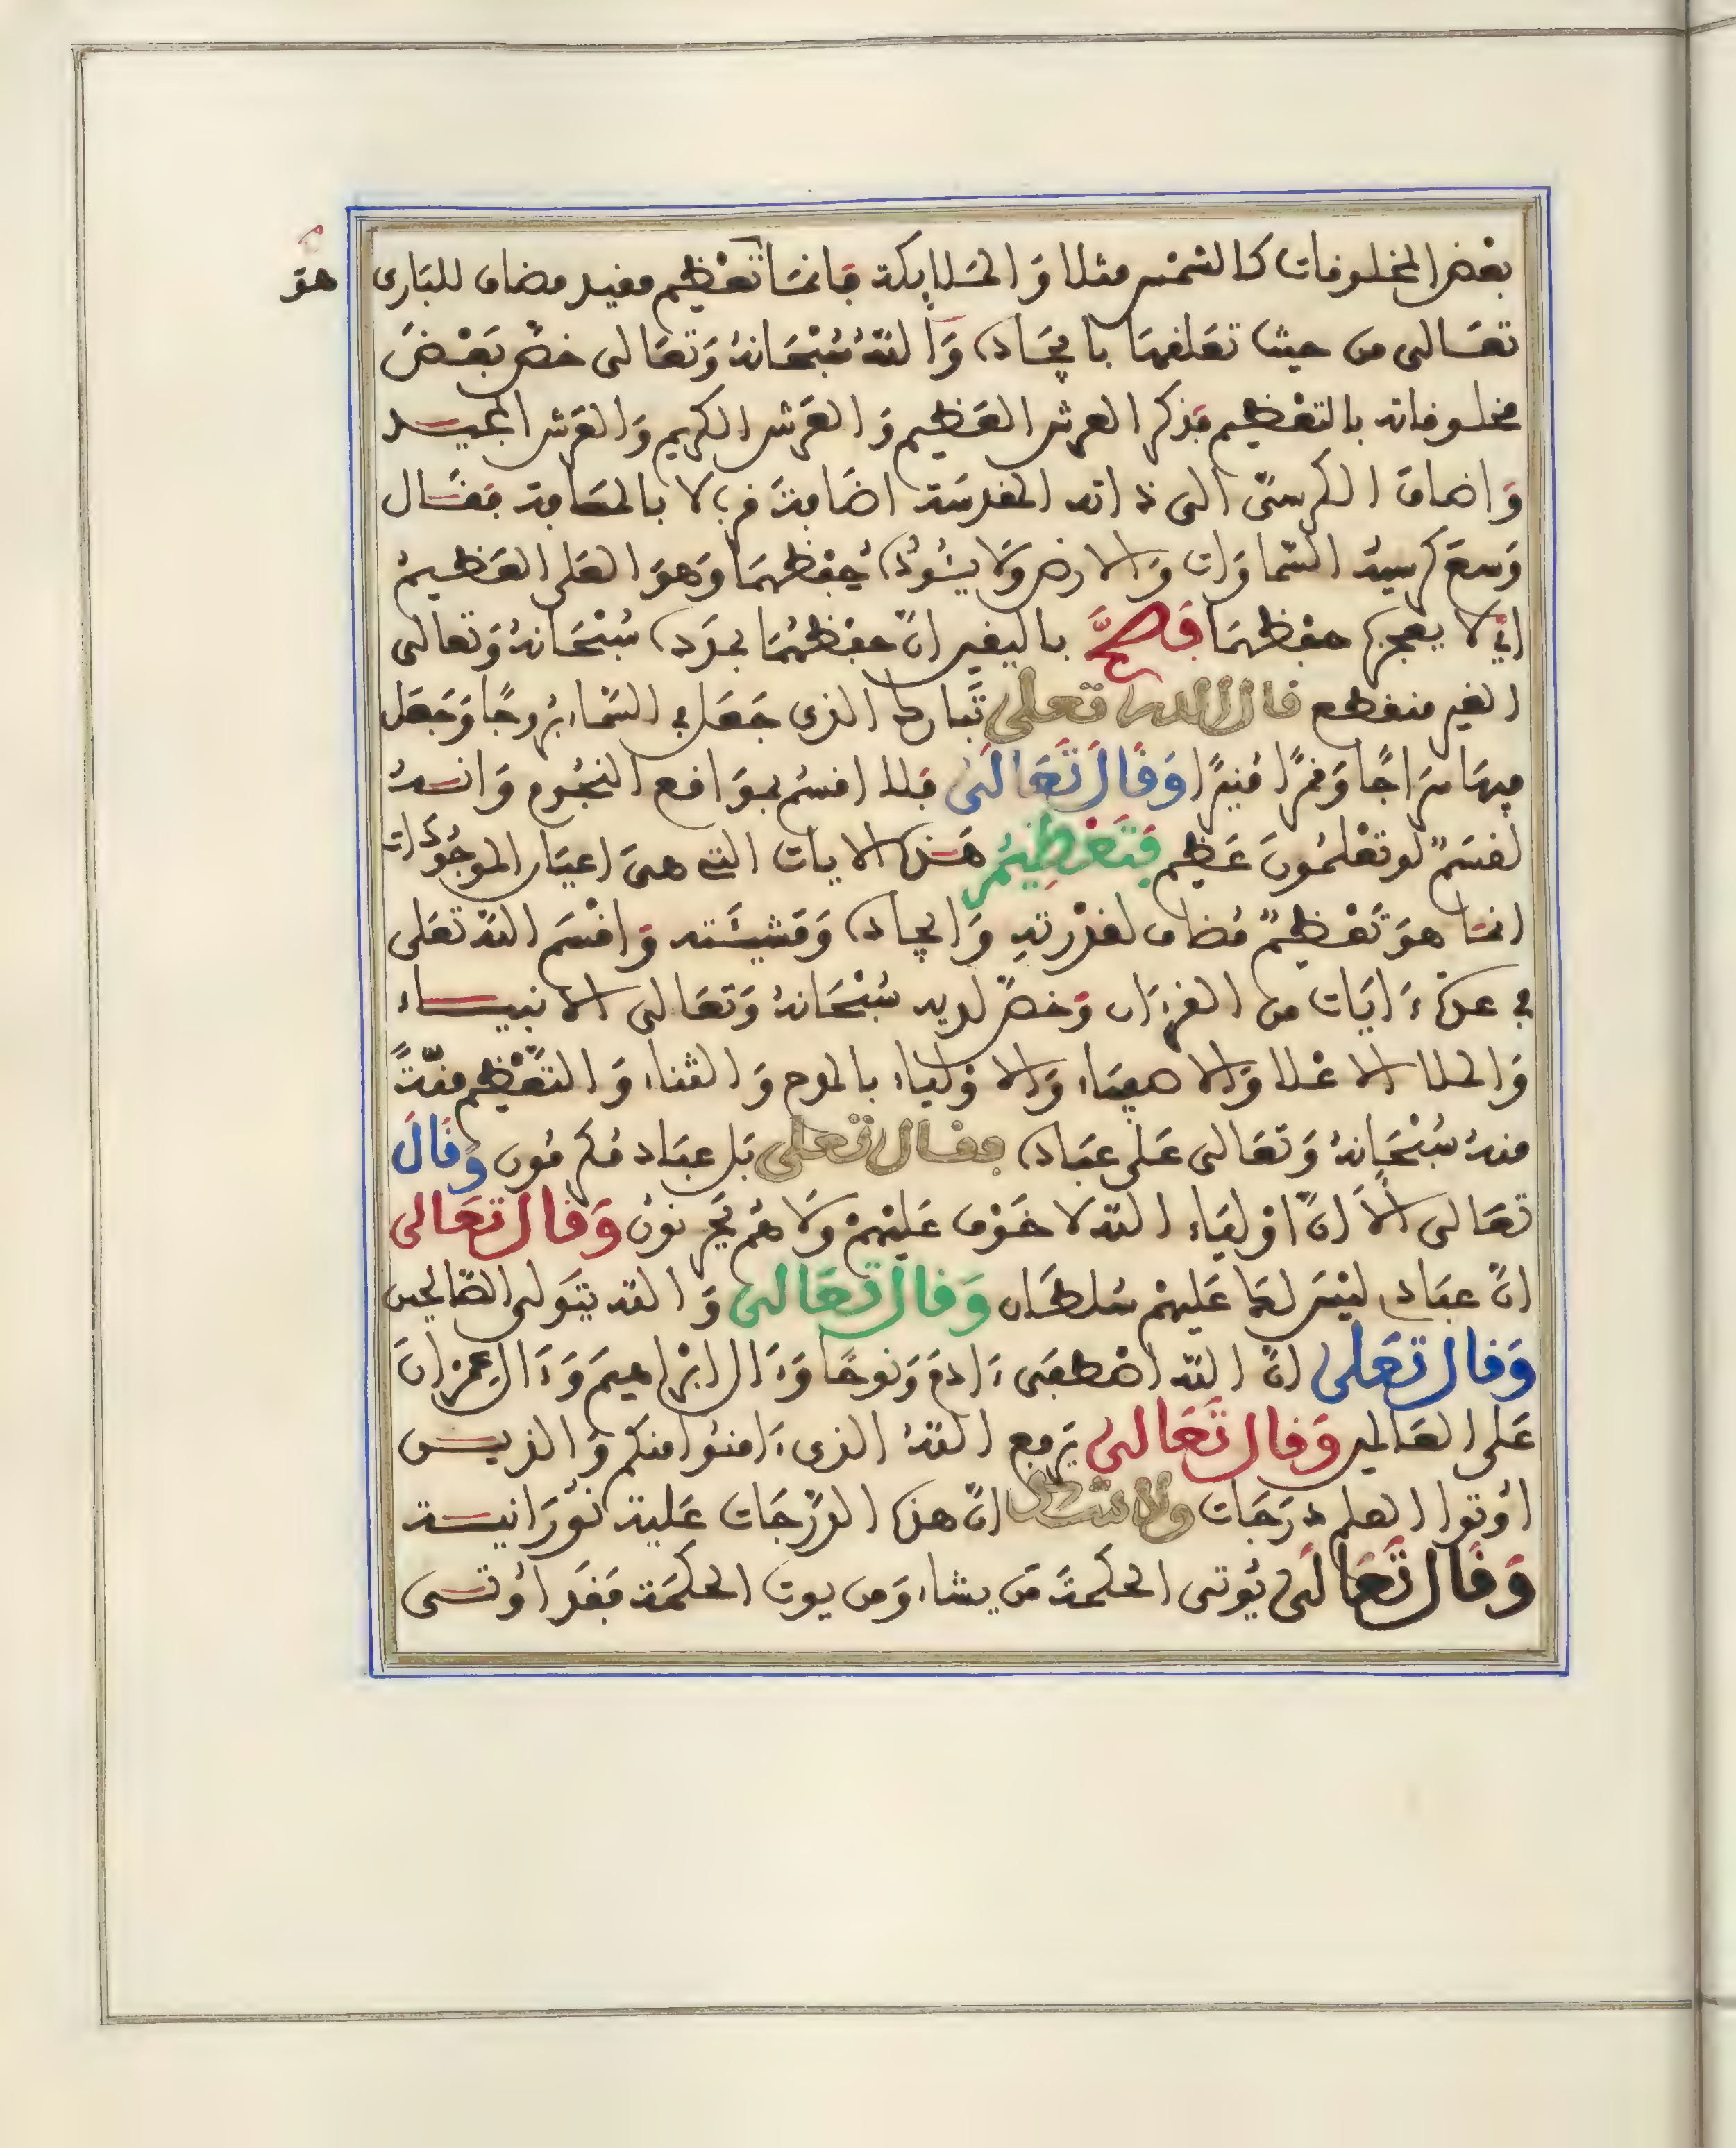 بعْض المخلوقات كالشمْس مثلا وَالمَلايكة فإنمَا تعْظيم مفيد مضاف للبَارى
هوَ
تعَالى من حيث تعَلقهَا بإيجَاده وَاللهُ سُبْحَانهُ وَتعَالى خصّ بَعْضَ
مخلوقاته بالتعْظيم فذكر العرش العَظيم وَالعَرش الكريم وَالعَرش المجيد
وَاضاف الكرسىّ الى ذاته المقدسَة اضَافة قرب لا بالمسَافة فقَال
وَسعَ كرسيهُ السّمَاوَات وَالارض وَلا يـُٔودُه حِفْظهمَا وَهوَ العَلى العَظيمُ
اىْ لا يعجزه حفْظهمَا فصَحَّ باليقين انّ حفْظهُمَا بمدَده سُبْحَانهُ وَتعَالى
الغير منقطع قال الله تعلى تَبَارك الذى جَعَل في السّمَاء بُروجًا وَجَعَل
فيهَا سَرَاجًا وَقمَرًا مُنيرًا وَقَالَ تَعَالَى فَلا اقسمُ بموَاقع النجُوم وَانهُ
لقسَمٌ لو تعْلمُونَ عَظيم فَتَعْظِيمُ هَذه الايات التي هىَ اعيَان الموجُودَات
انمَا هوَ تَعْظيمٌ مُضاف لقدْرتهِ وَايجاده وَمَشيئَته وَاقْسَم اللهُ تعَلى
في عدّة ءَايَات من القرءَان وَخصّ لديه سُبْحَانهُ وَتعَالى الانبيَاء
وَالملا الاعْلا وَالاصفيَاء وَالاوْليَاء بالمدح وَالثناء وَالتّعْظيم منّةً
منهُ سُبْحَانهُ وَتعَالى عَلى عبَاده فقال تعلى بَل عبَاد مُكرمُون وَقَالَ
تعَالى الَا انّ اوْليَاء الله لا خَوْف عَليْهمْ وَلا هُم يَحْزنونُ وَقال تعَالى
انّ عبَادى ليْسَ لكَ عَليهمْ سُلطَان وَقال تَعَالى وَالله يتَولى الصّالحين
وَقال تعَلى انّ الله اصْطفَى ءَادمَ وَنوحًا وَءَال ابْرَاهيمَ وَءَال عِمْرَانَ
عَلى العَالمين وَقال تَعَالى يَرفع اللهُ الذى ءَامنُوا منكمْ وَالذين
اوُتوا العلم درَجَات ولا شك انّ هذه الدّرَجَات عَلية نُورَانية
وَقَال تَعَالَى يُوتى الحكمَةَ مَن يشاء وَمن يوت الحكمَة فقَد اوُتى